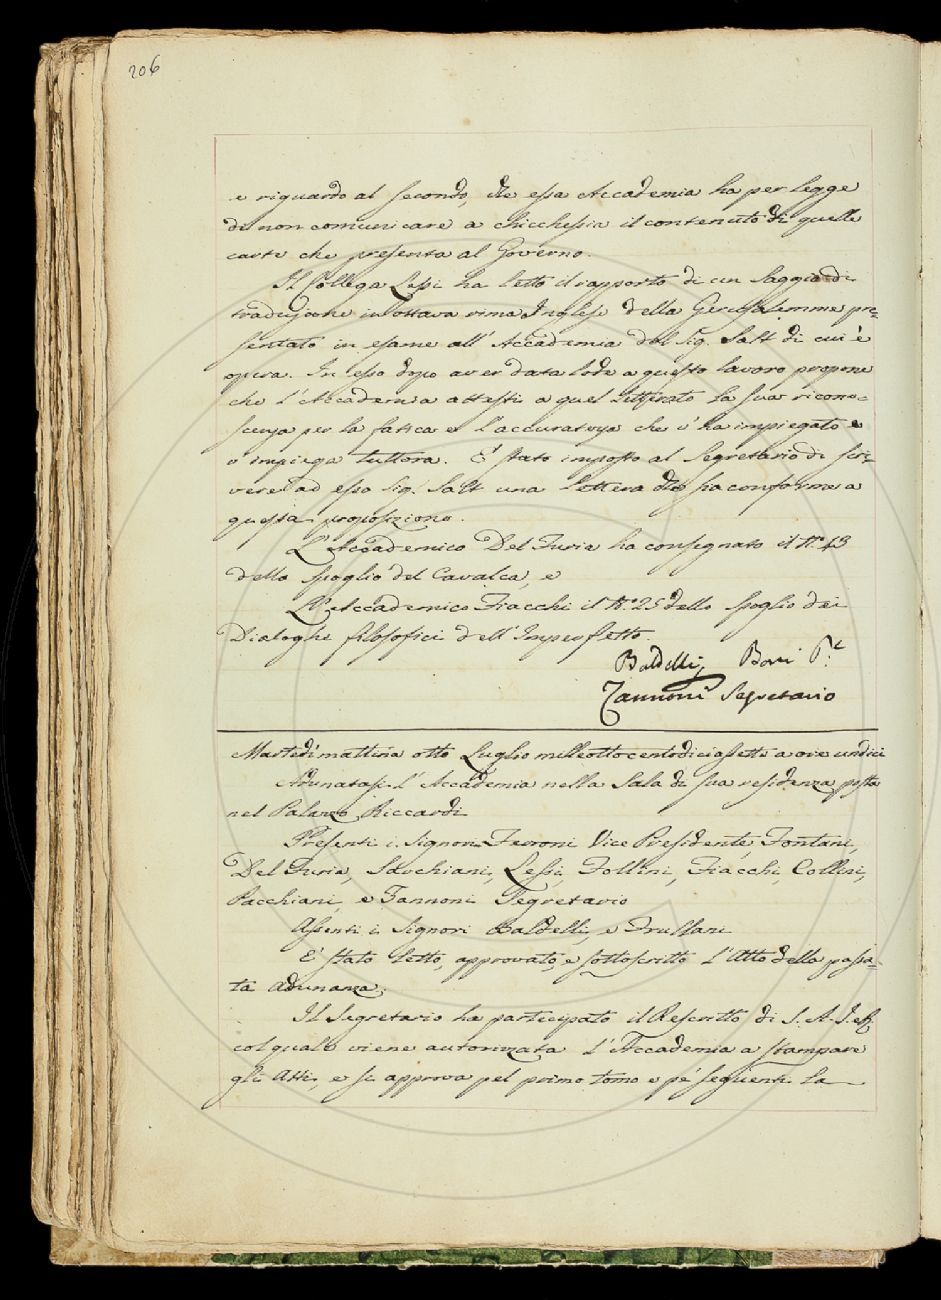 206
e riguardo al secondo, che essa Accademia ha per legge
di non comunicare a chicchessia il contenuto di quelle
carte che presenta al Governo.
Il Collega Lessi ha letto il rapporto di un Saggio di
traduzione in ottava rima Inglese della Gerusalemme pre-
sentato in esame all'Accademia dal Sig. Salt di cui è
opera. In esso dopo aver data lode a questo lavoro propone
che l'Accademia attesti a quel Letterato la sua ricono-
scenza per la fatica e l'accuratezza che v'ha impiegato e
v'impiega tuttora. È stato imposto al Segretario di scri-
vere ad esso Sig. Salt una lettera che sia conforme a
questa proposizione.
L'Accademico Del Furia ha consegnato il N.º 13
dello spoglio del Cavalca, e
L'Accademico Fiacchi il N.º 25 dello spoglio dei
Dialoghi filosofici dell'Imperfetto.
Baldelli Boni P.te
Zannoni Segretario
Martedì mattina otto Luglio milleottocentodiciassette a ore undici
Adunatasi l'Accademia nella Sala di sua residenza posta
nel Palazzo Riccardi
Presenti i Signori Ferroni Vice Presidente, Fontani,
Del Furia, Sarchiani, Lessi, Follini, Fiacchi, Collini,
Pacchiani, e Zannoni Segretario
Assenti i Signori Baldelli, e Frullani
È stato letto, approvato, e sottoscritto l'Atto della passa-
ta adunanza.
Il Segretario ha partecipato il Rescritto di S. A. I. e R.
col quale viene autorizzata l'Accademia a stampare
gli Atti, e si approva pel primo tomo e pe' seguenti la